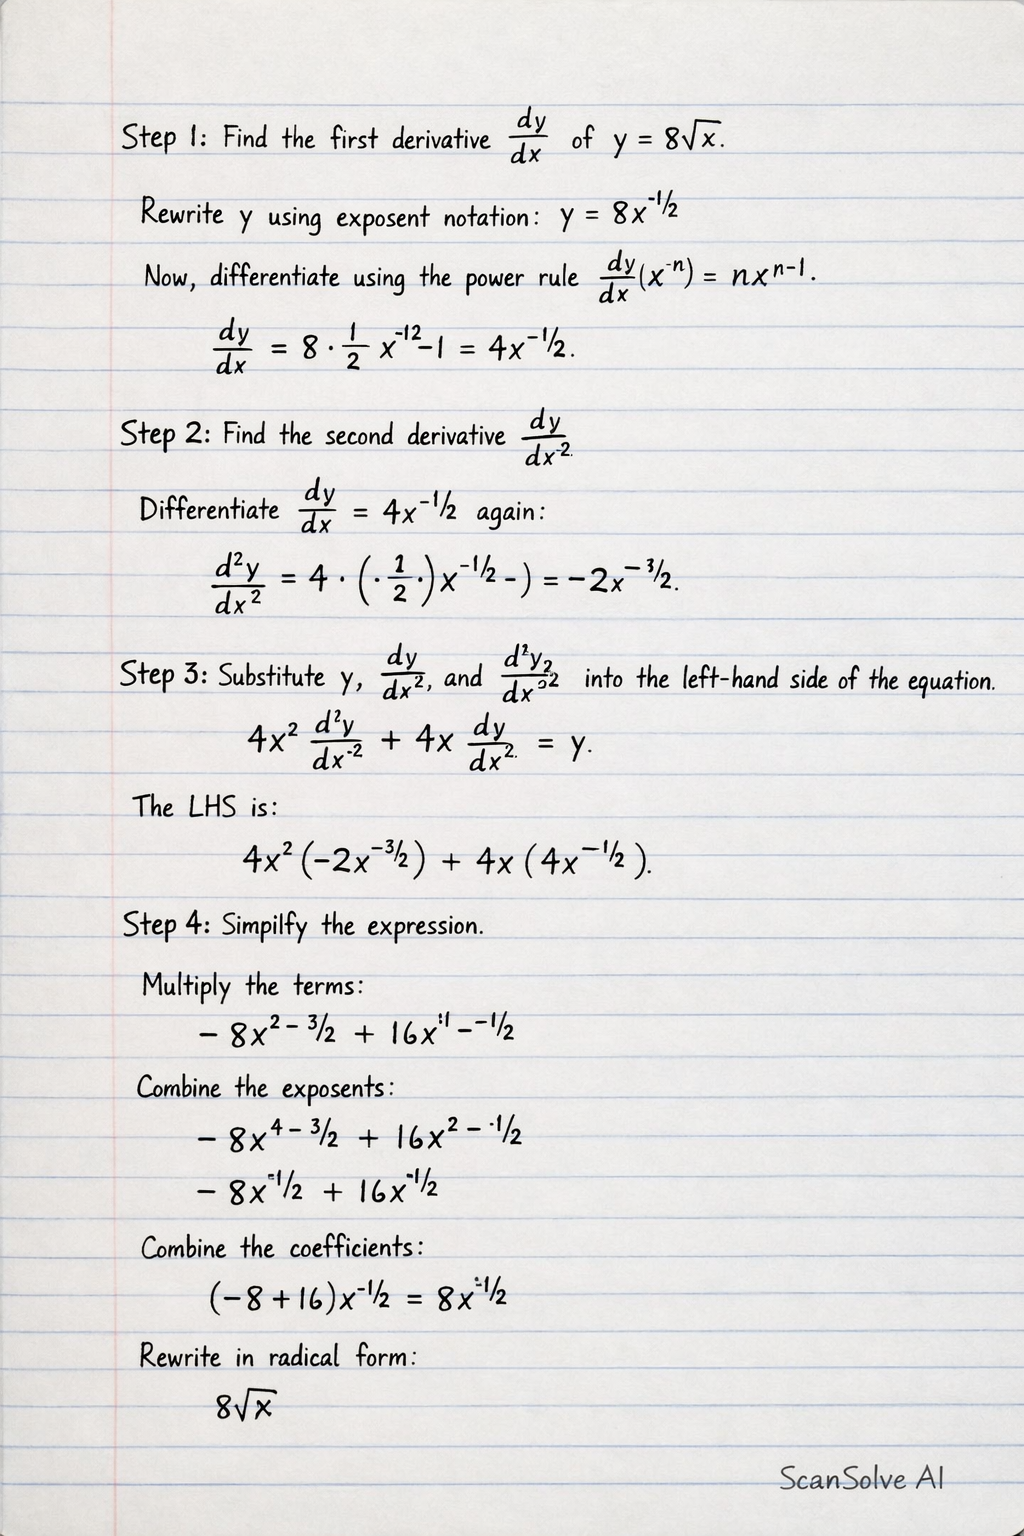 Step 1: Find the first derivative dy/dx of y = 8√x.
Rewrite y using exposent notation: y = 8x^-1/2
Now, differentiate using the power rule dy/dx(x^-n) = nx^n-1.
dy/dx = 8 · 1/2 x^-12 -1 = 4x^-1/2.
Step 2: Find the second derivative dy/dx^-2.
Differentiate dy/dx = 4x^-1/2 again:
d²y/dx² = 4 · (· 1/2 ·)x^-1/2 -) = -2x^-3/2.
Step 3: Substitute y, dy/dx², and d²y₂/dx^32 into the left-hand side of the equation.
4x² d²y/dx^-2 + 4x dy/dx². = y.
The LHS is:
4x² (-2x^-3/2) + 4x (4x^-1/2).
Step 4: Simpilfy the expression.
Multiply the terms:
- 8x^2 - 3/2 + 16x^:1 - -1/2
Combine the exposents:
- 8x^4 - 3/2 + 16x^2 - ·1/2
- 8x^-1/2 + 16x^-1/2
Combine the coefficients:
(-8 + 16)x^-1/2 = 8x^-1/2
Rewrite in radical form:
8√x
ScanSolve AI